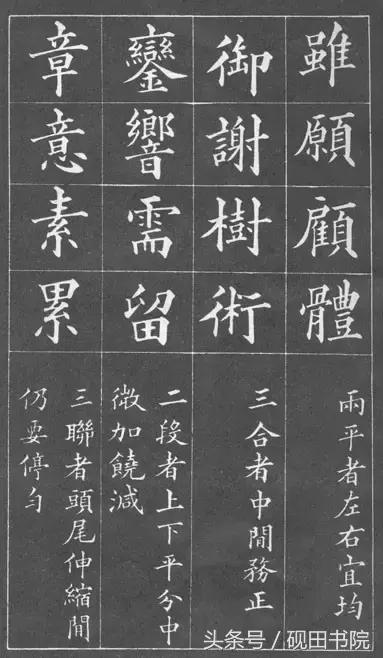 雖願顧體
兩平者左右宜均
御謝樹術
三合者中間務正
鑾響需留
二段者上下平分中
微加饒減
章意素累
三聯者頭尾伸縮間
仍要停勻
头条号／砚田书院